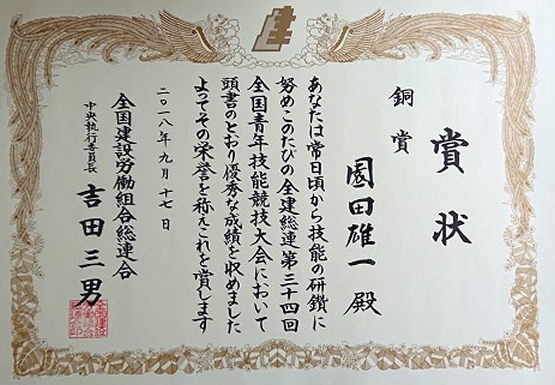 賞状
銅賞
園田雄一 殿
あなたは常日頃から技能の研鑽に
努めこのたびの全建総連第三十四回
全国青年技能競技大会において
頭書のとおり優秀な成績を収めました
よってその栄誉を称えこれを賞します
二〇一八年九月十七日
全国建設労働組合総連合
中央執行委員長 吉田三男